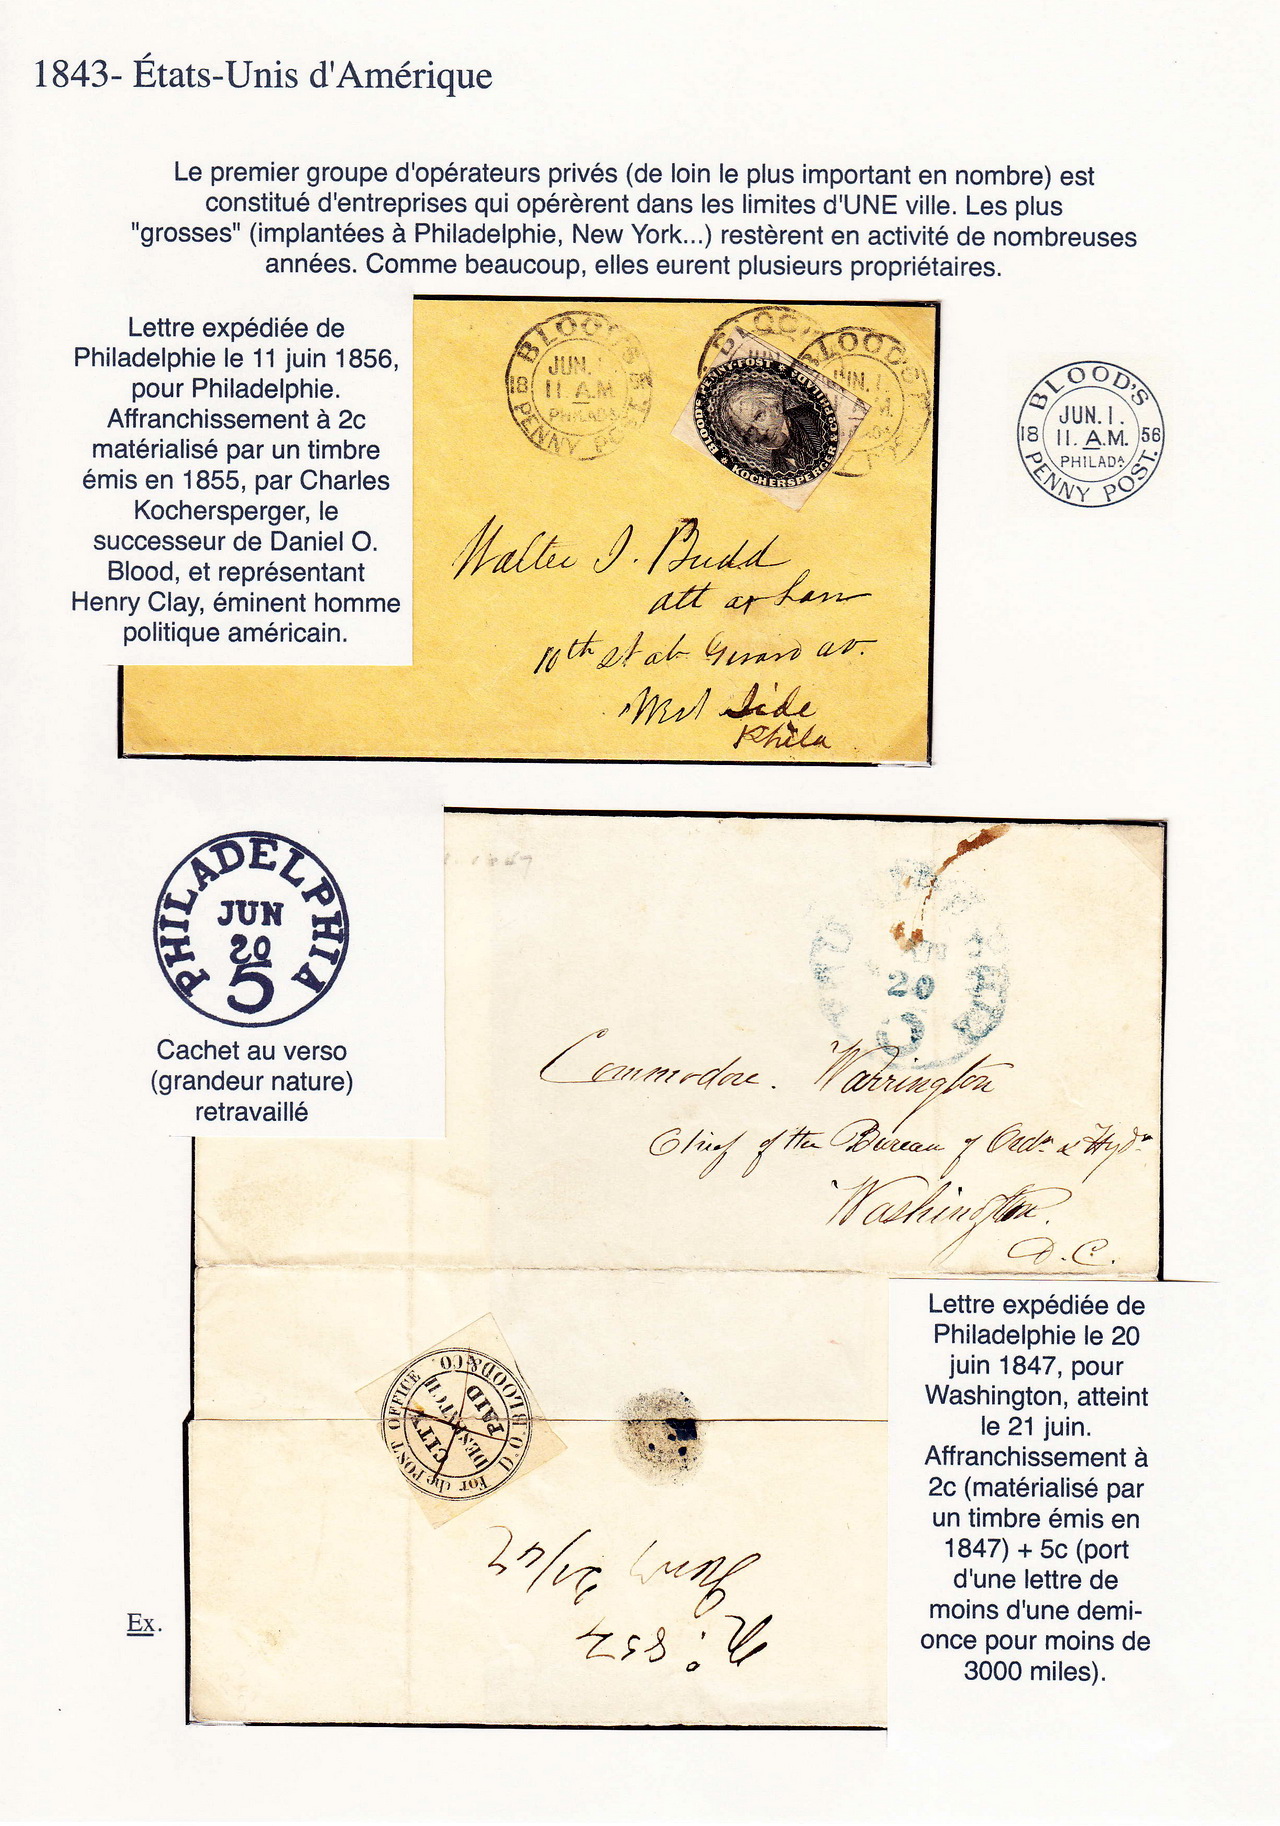 1843- États-Unis d'Amérique
Le premier groupe d'opérateurs privés (de loin le plus important en nombre) est
constitué d'entreprises qui opérèrent dans les limites d'UNE ville. Les plus
"grosses" (implantées à Philadelphie, New York...) restèrent en activité de nombreuses
années. Comme beaucoup, elles eurent plusieurs propriétaires.
Lettre expédiée de
Philadelphie le 11 juin 1856,
pour Philadelphie.
Affranchissement à 2c
matérialisé par un timbre
émis en 1855, par Charles
Kochersperger, le
successeur de Daniel O.
Blood, et représentant
Henry Clay, éminent homme
politique américain.
BLOOD'S
JUN. 1.
18 11 A.M.
PHILADA
PENNY POST
BLOOD'S
BLOOD'S
JUN. 1.
BLOOD'S PENNY-POST * PHILADA
KOCHERSPERGER & CO
BLOOD'S
JUN. 1.
18 11. A.M. 56
PHILADA
PENNY POST.
Walter J. Budd
att at Law
10th st ab Girard av.
West Side
Phila
PHILADELPHIA
JUN
20
5
Cachet au verso
(grandeur nature)
retravaillé
20
5
Commodore. Warrington
Chief of the Bureau of Ordn & Hydn
Washington.
D.C.
D.O. BLOOD & CO.
For the POST OFFICE
CITY DESPATCH
PAID
No. 857
Lettre expédiée de
Philadelphie le 20
juin 1847, pour
Washington, atteint
le 21 juin.
Affranchissement à
2c (matérialisé par
un timbre émis en
1847) + 5c (port
d'une lettre de
moins d'une demi-
once pour moins de
3000 miles).
Ex.